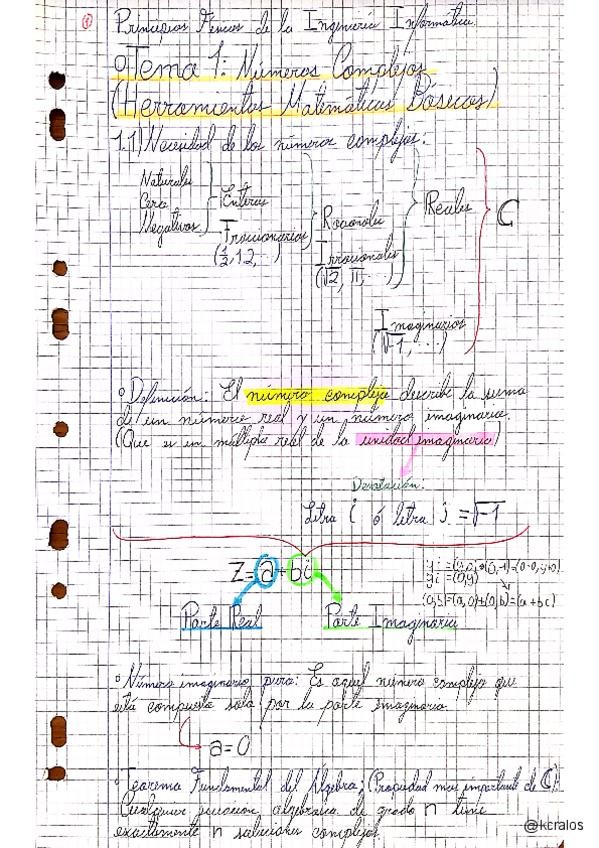 ①
Principios Físicos de la Ingeniería Informática.
Tema 1: Números Complejos
(Herramientas Matemáticas Básicas)
1.1) Necesidad de los números complejos:
Naturales
Cero
Negativos
Enteros
Fraccionarios
(1/2, 1.2, ...)
Racionales
Irracionales
(√2, π, ...)
Reales
ℂ
Imaginarios
(√-1, ...)
Definición: El número complejo describe la suma
de un número real y un número imaginario.
(Que es un múltiplo real de la unidad imaginaria)
Denotación:
Letra i ó letra j = √-1
z = a + bi
yi = (0,y)
Parte Real
Parte Imaginaria
Número imaginario puro: Es aquel número complejo que
está compuesto solo por la parte imaginaria.
a = 0
Teorema Fundamental del Álgebra: (Propiedad mas importante de ℂ):
Cualquier ecuación algebraica de grado n tiene
exactamente n soluciones complejas.
@kcralos